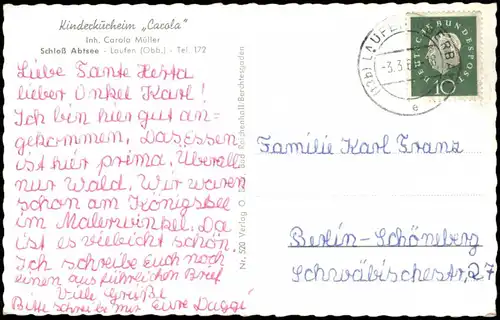 Kinderkücheim „Carola"
Inh. Carola Müller
Schloß Abtsee - Laufen (Obb.) - Tel. 172
Liebe Tante Herta
lieber Onkel Karl!
Ich bin hier gut an-
gekommen, Das Essen
ist hier prima, Überall
nur Wald, Wir waren
schon am Königssee
im Malerwinkel. Da
ist es vieleicht schön.
Ich schreibe Euch noch
einen ausführlichen Brief
Viele Grüße
Bitte schreibt mir Eure Daggi
Nr. 520 Verlag O Bad Reichenhall/Berchtesgaden
(13b) LAUFEN OBERB
-3.3.6
e
DEUTSCHE BUNDESPOST
10
Familie Karl Franz
Berlin-Schöneberg
Schwäbischestr, 27